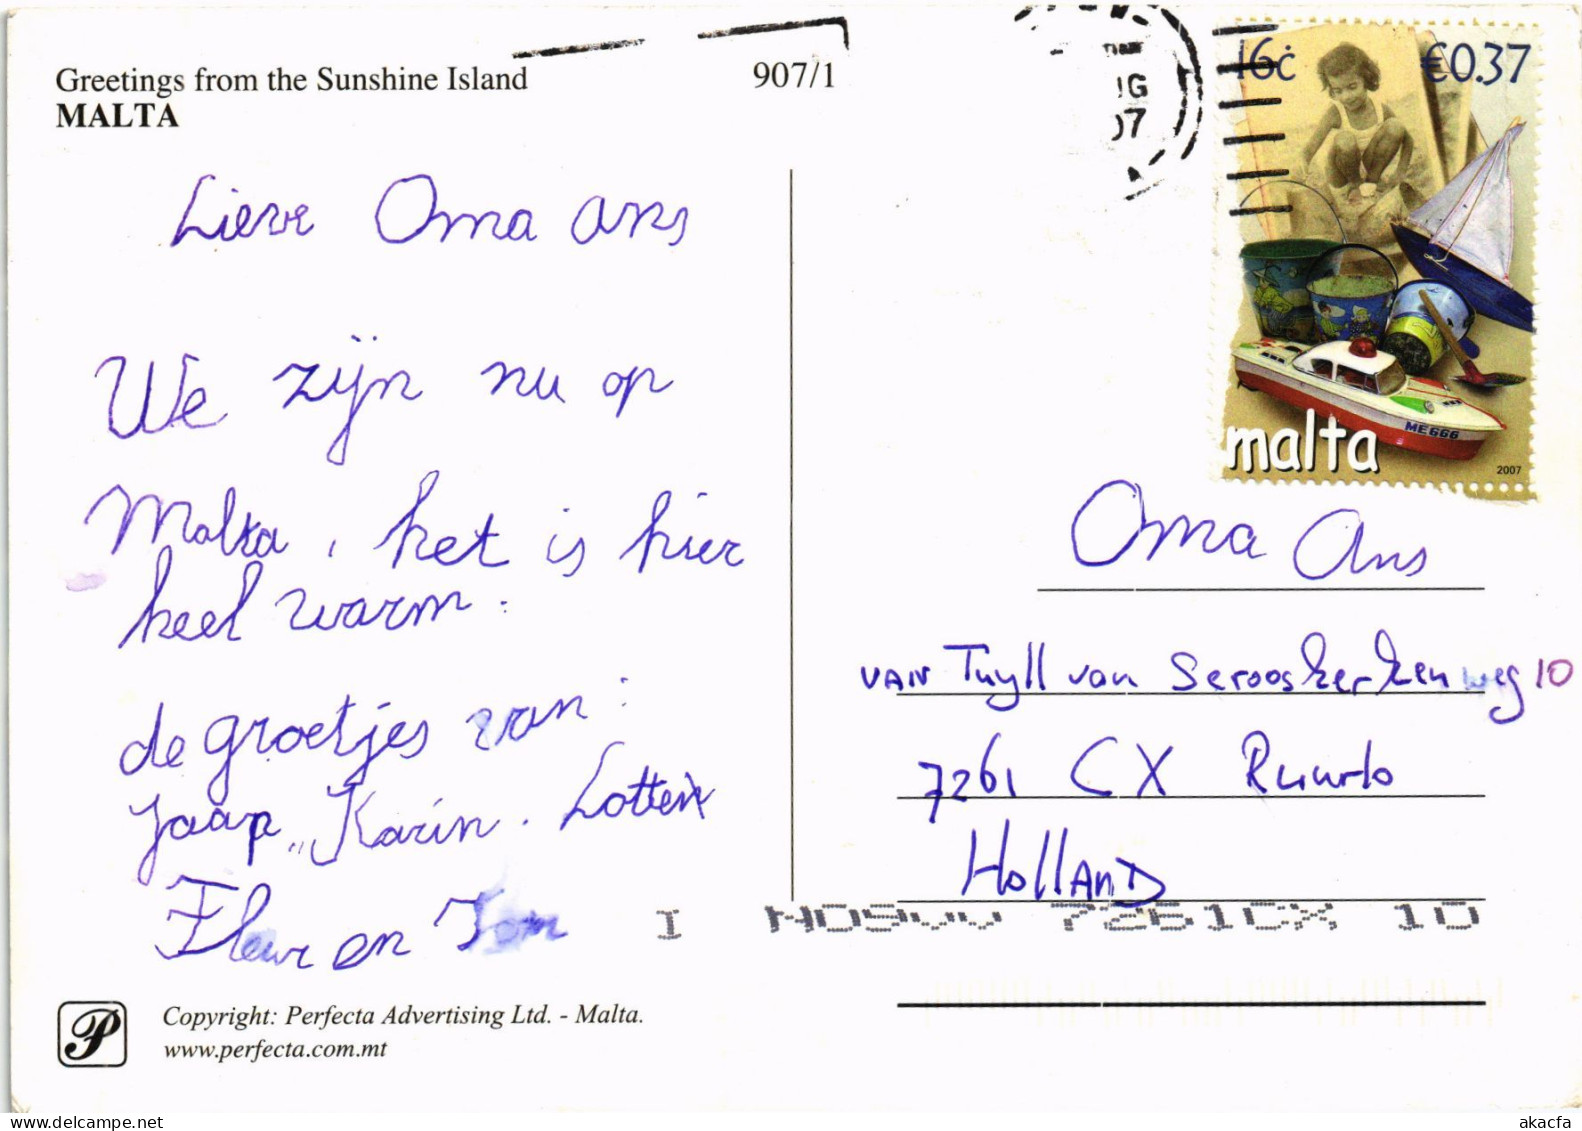 Greetings from the Sunshine Island
MALTA
907/1
UG
07
16c €0.37
ME666
malta
2007
Lieve Oma Ans
We zijn nu op
Malta, het is hier
heel warm.
de groetjes van:
Jaap, Karin, Lotte
Fleur en Tom
Oma Ans
VAN Tuyll van Serooskerkenweg 10
7261 CX Ruurlo
HollAnD
7261CX 10
P
Copyright: Perfecta Advertising Ltd. - Malta.
www.perfecta.com.mt
delcampe.net
akacfa